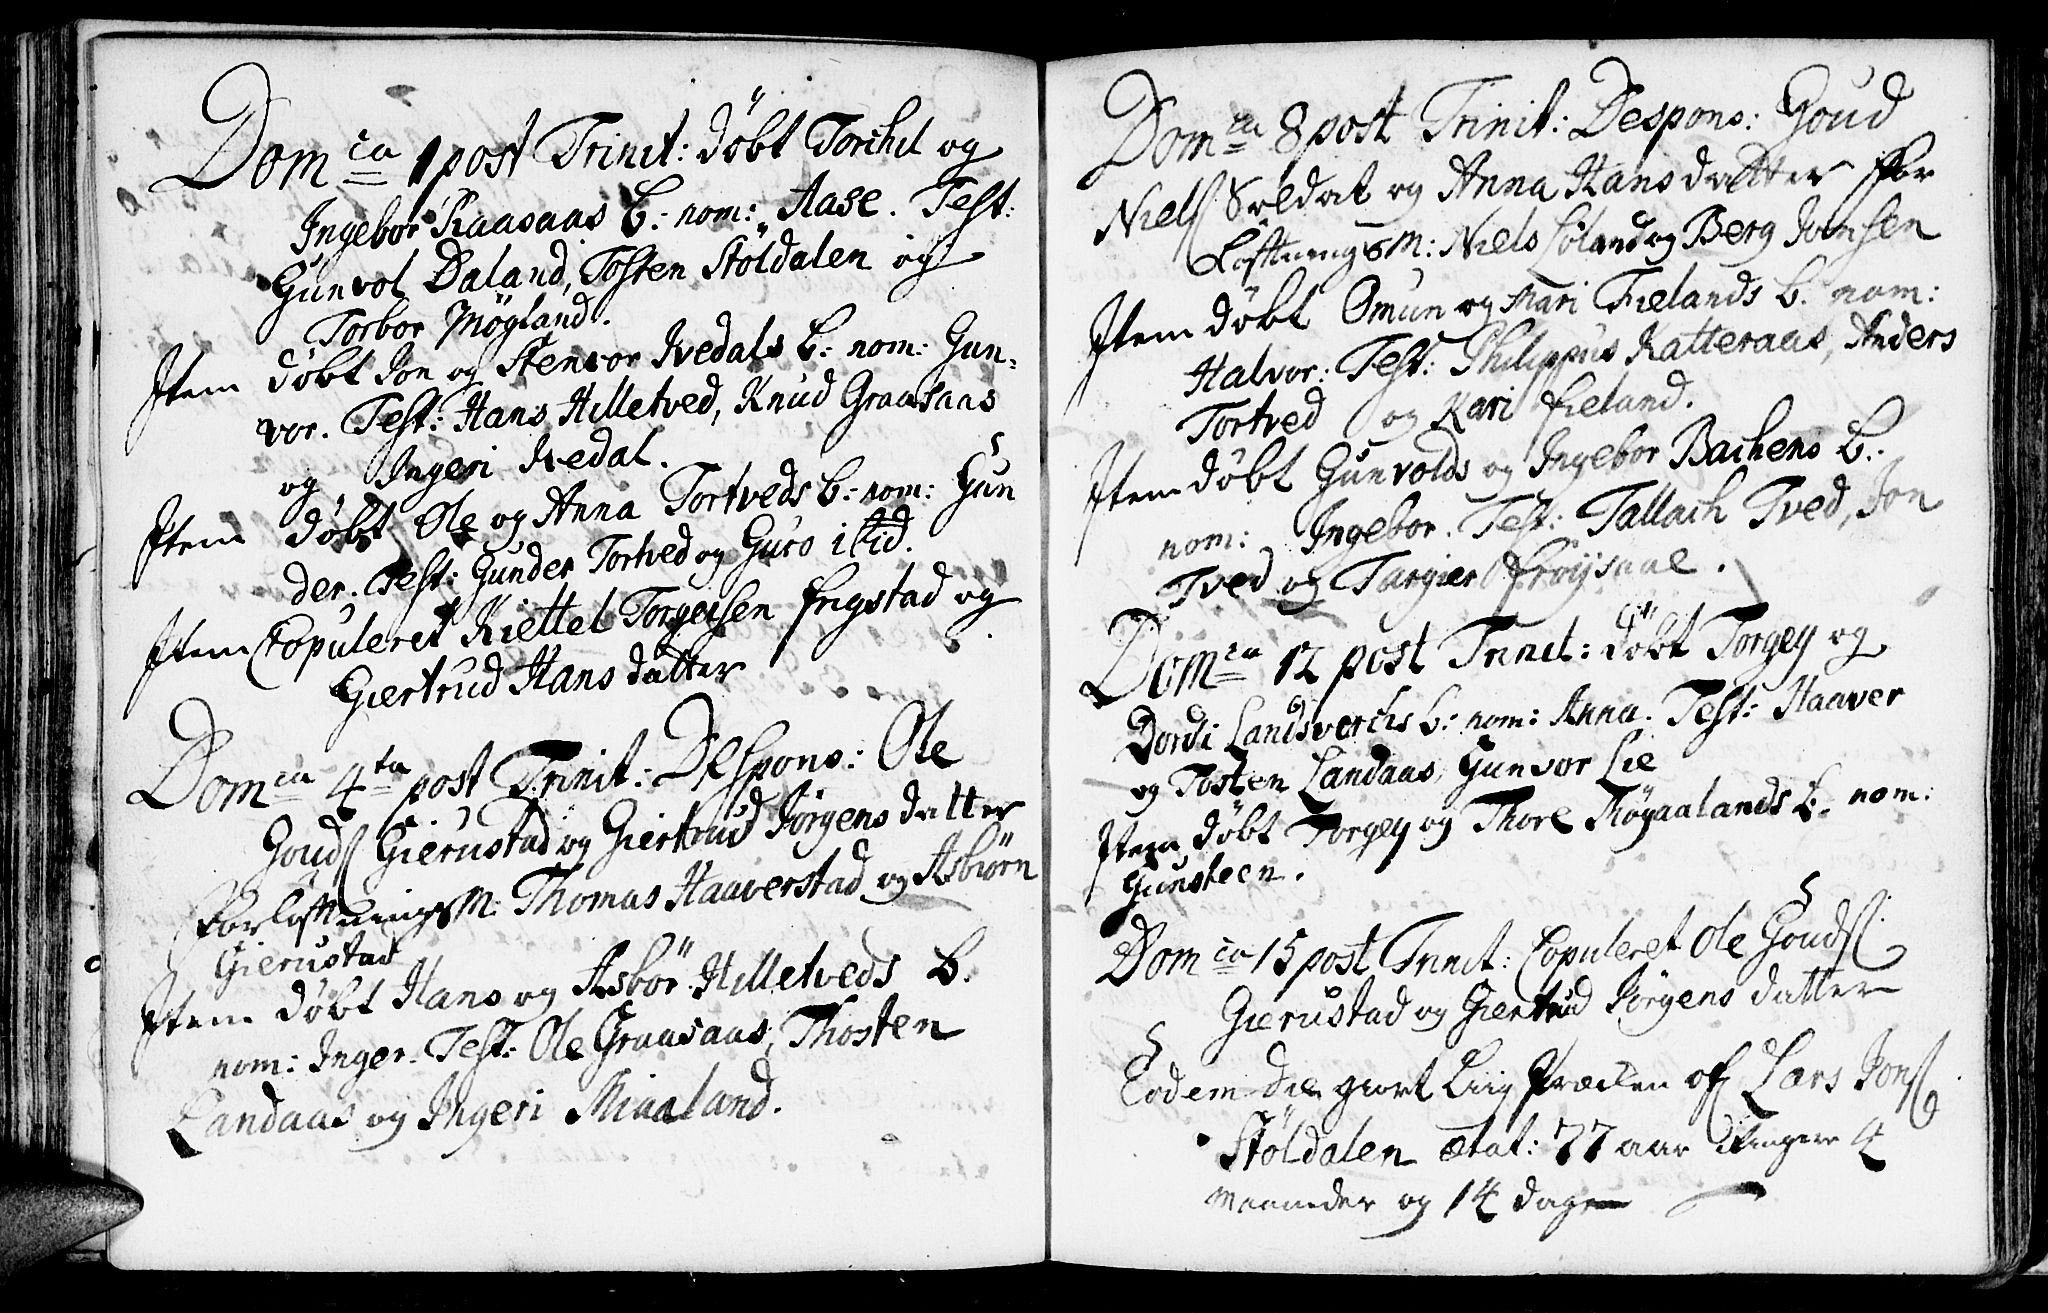 Dom ca 1 post Trinit: döbt Torchil og
Ingebor Raasaas b: nom: Aase. Test:
Gunvol Daland, Tosten Stöldalen og
Torbor Mögland.
Item döbt Jon og Stenvor Ivedals b: nom: Gun-
vor. Test: Hans Hilletved, Knud Graasaas
og Ingeri Ivedal.
Item döbt Ole og Anna Tortveds b: nom: Gun
der. Test: Gunder Tortved og Guro ibid.
Item Copuleret Kiettel Torgersen frigstad og
Giertrud Hans datter
Dom ca 4 ta post Trinit: Despons: Ole
Gouds Gierustad og Giertrud Jörgens datter
Forlöftnings M: Thomas Haaverstad og Asbiörn
Gierustad
Item döbt Hans og Asbör Hilletveds b.
nom: Inger. Test: Ole Graasaas, Thosten
Landaas og Ingeri Miaaland.
Dom ca 8 post Trinit: Despons: Goud
Niels Soldat og Anna Hans datter For
Löftnings M: Niels Löland og Berg Jonsen
Item döbt Omun og Mari Fielands b. nom:
Halvor: Test: Philippus Katteraas, Anders
Tortved og Kari fieland.
Item döbt Gunvolds og Ingebor Bachens b.
nom: Ingebor. Test: Tallach Tved, Jon
Tved og Targier Fröysaae.
Dom ca 12 post Trinit: döbt Torgey og
Dordi Landsverchs b: nom: Anna. Test: Haaver
og Tosten Landaas, Gunvor Lie
Item döbt Torgey og Thore Mögaalands b. nom:
Gunsteen.
Dom ca 15 post Trinit: Copuleret Ole Gouds
Gierustad og Giertrud Jörgens datter
Eodem die giort Liig Præcken of Lars Jons
Stöldalen ætat: 77 aar 4
maaneder og 14 dage